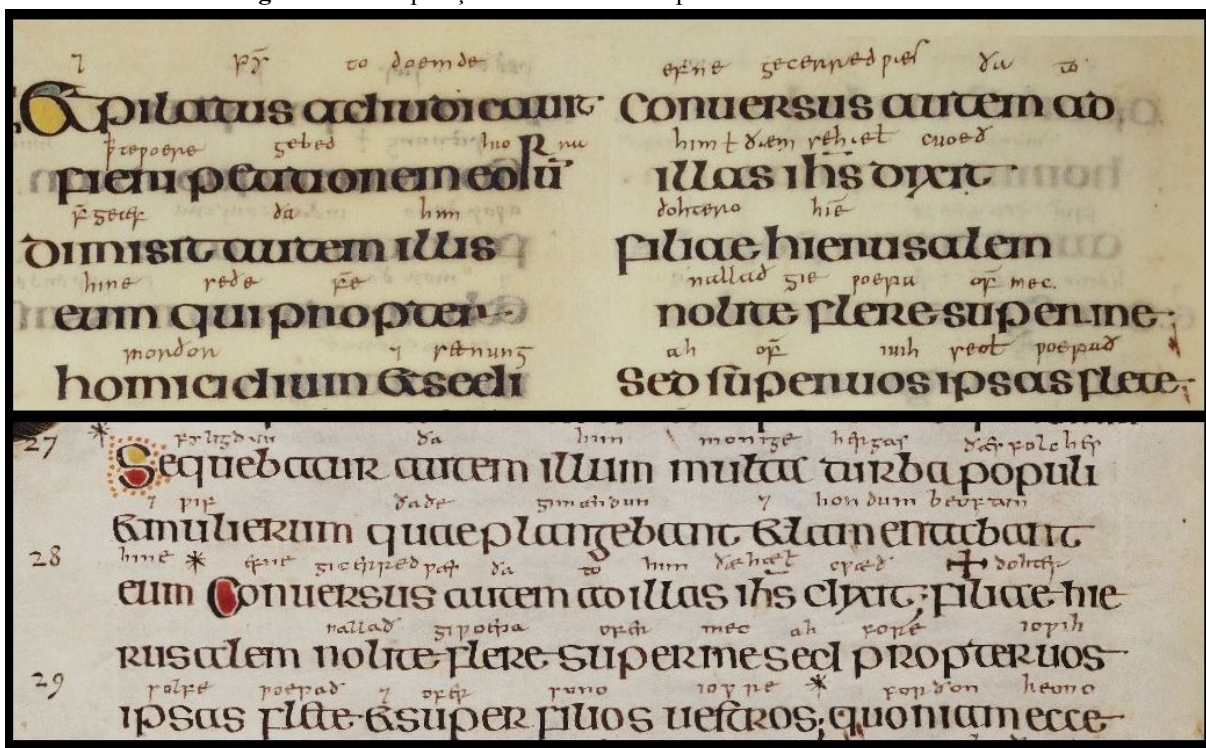 ⁊ to doemde
Et pilatus adiudicauit
gebed
fieri petitionem eorū
ða him
dimisit autem illis
hine seðe
eum qui propter
morðor ⁊ setnung
homicidium & sedi
efne gecerred wæs ða to
Conuersus autem ad
him ł ðæm cuoeð
illas ihs̄ dixit
dohtero hie
filiae hierusalem
nallað gie woepa of' mec.
nolite flere super me
ah of' iuih seolf woepað
sed super uos ipsas flete
27 * ða him monige hergas ðæs folches
Sequebatur autem illum multa turba populi
⁊ wif ðaðe ⁊ hondum
& mulierum quae plangebant & lamentabant
28 hine * efne gicerred wæs ða to him cwæð + dohter
eum Conuersus autem ad illas ihs̄ dixit; filiae hie
nallað giwoepa ofer mec ah fore iowih
rusalem nolite flere super me sed propter uos
29 solfe woepað ⁊ ofer suno iowre * forðon heono
ipsas flete & super filios uestros; quoniam ecce